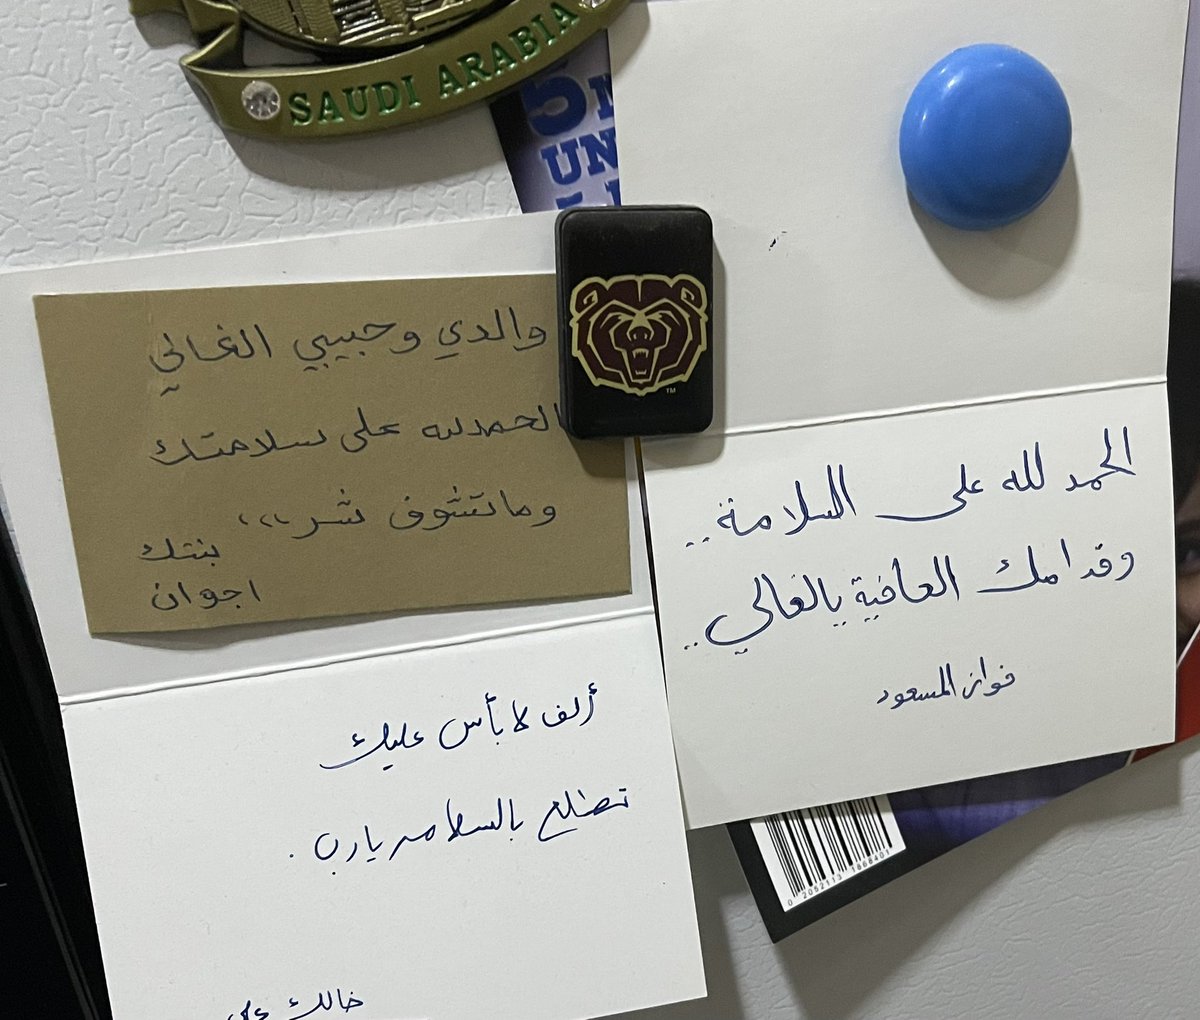 SAUDI ARABIA
5
UN
والدي وحبيبي الغالي
الحمدلله على سلامتك
وماتشوف شر،،،
بنتك
اجوان
TM
الحمد لله على السلامة..
وقدامك العافية يالغالي..
فواز المسعود
ألف لا بأس عليك
تطلع بالسلامه يارب.
خالك علي
0 2052113 1868401